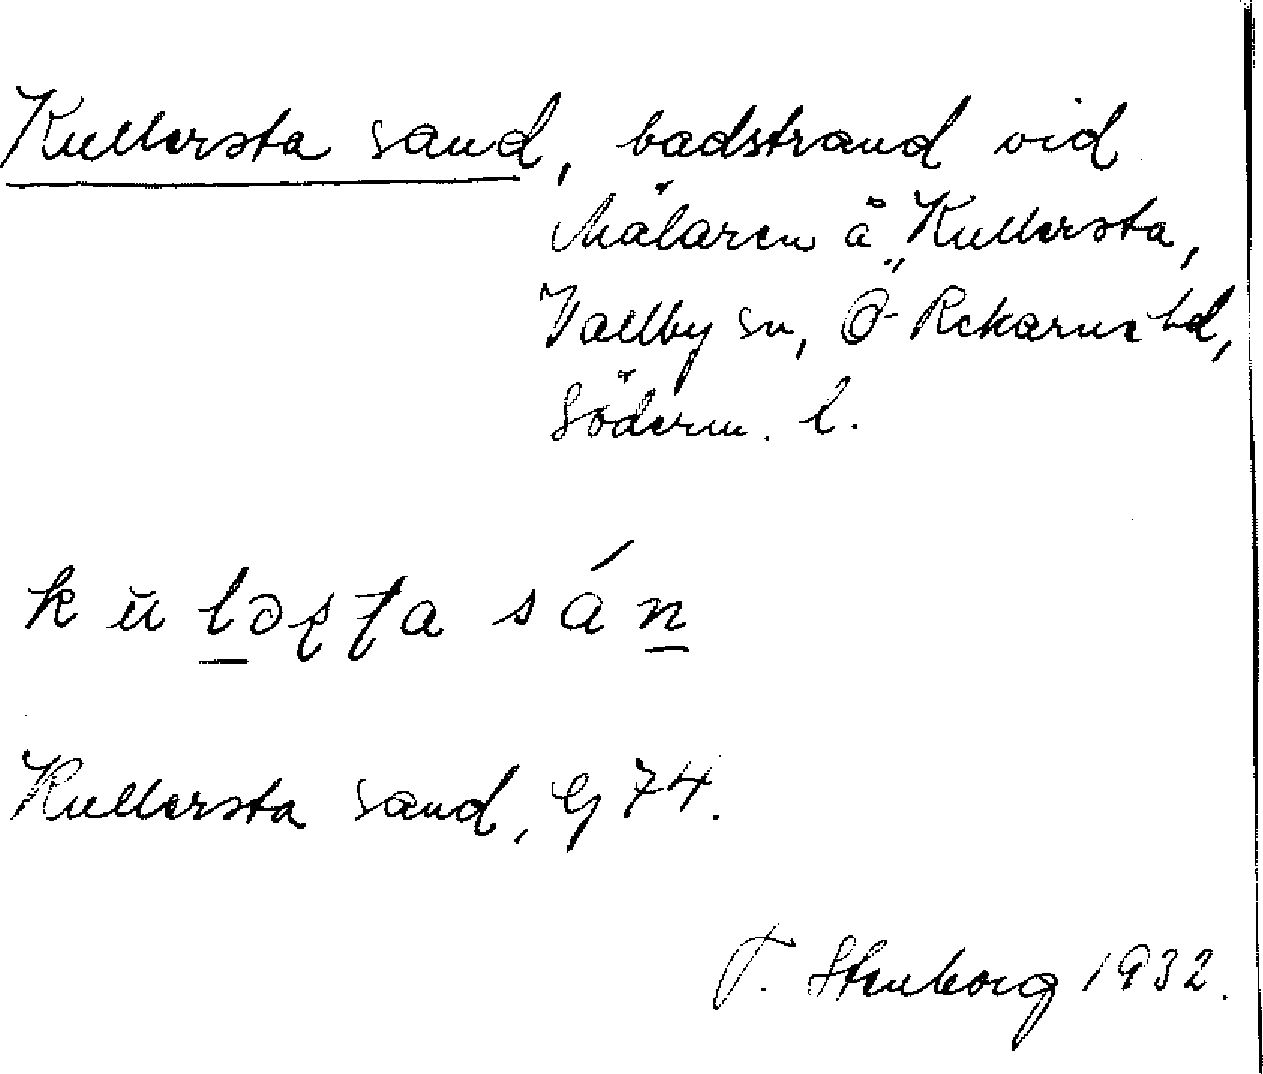 Kullersta sand, badstrand vid
Mälaren å Kullersta,
Vallby sn, Ö Rekarne hd,
Söderm. l.
kŭl̲əʂʈa sán̲
Kullersta sand, Gj 74.
T. Stenborg 1932.